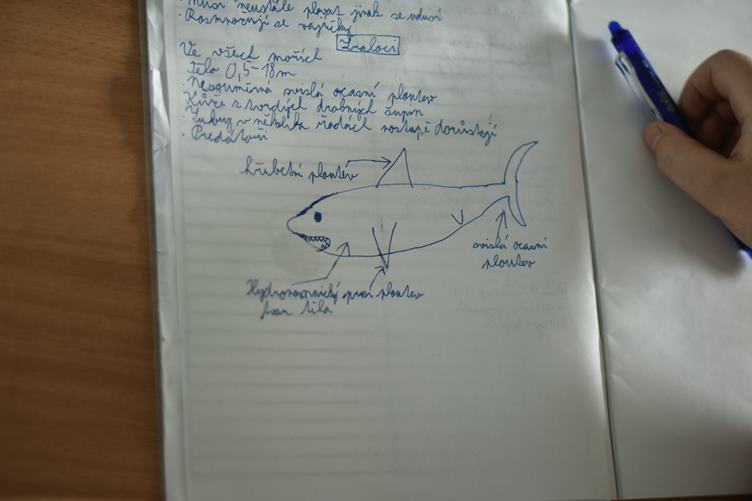 · Musí neustále plavat jinak se udusí
· Rozmnožují se vajíčky
Žraloci
Ve všech mořích
tělo 0,5-18m
· Nesouměrná svislá ocasní ploutev
Kůže z tvrdých drobných šupin
· Zuby v několika řadách postupě dorůstají
· Predátoři
hřbetní ploutev
svislá ocasní
ploutev
Hydrodynamický prsní ploutev
tvar těla